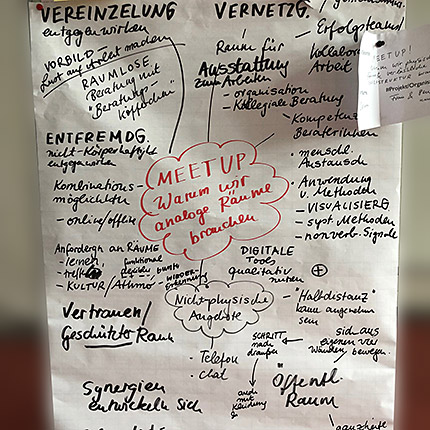 VEREINZELUNG
entgegenwirken
VORBILD -
Lust auf Arbeit machen
RAUMLOSE
Beratung mit
"Beratungs-
köfferchen"
ENTFREMDG.
nicht-Körperhaftigk.
entgegenwirken
Kombinations-
möglichkeiten
- online/offline
Anforderg'n an RÄUME
- lernen
- treffen
- KULTUR/Athmo
funktional
bunt
WIEDER-
erkennung
Vertrauen/
Geschützter Raum
Synergien
entwickeln sich
VERNETZG.
Raum für
Ausstattung
zum Arbeiten
- organisation
- Kollegiale Beratung
MEETUP
Warum wir
analoge Räume
brauchen
Nicht-physische
Angebote
- Telefon
- chat
DIGITALE
Tools
qualitativ
nutzen
Erfolgsteam/
Kollaborat.
Arbeit
Kompetenz
BeraterInnen
• menschl.
Austausch
• Anwendung
v. Methoden
- VISUALISIERG
- syst. Methoden
- nonverb. Signale
+
- "Halbdistanz"
kann angenehm
sein
SCHRITT
nach
draußen
sich aus
eigenen vier
Wänden bewegen.
auch
mit
Kleidung
Öffentl.
Raum
MEETUP!